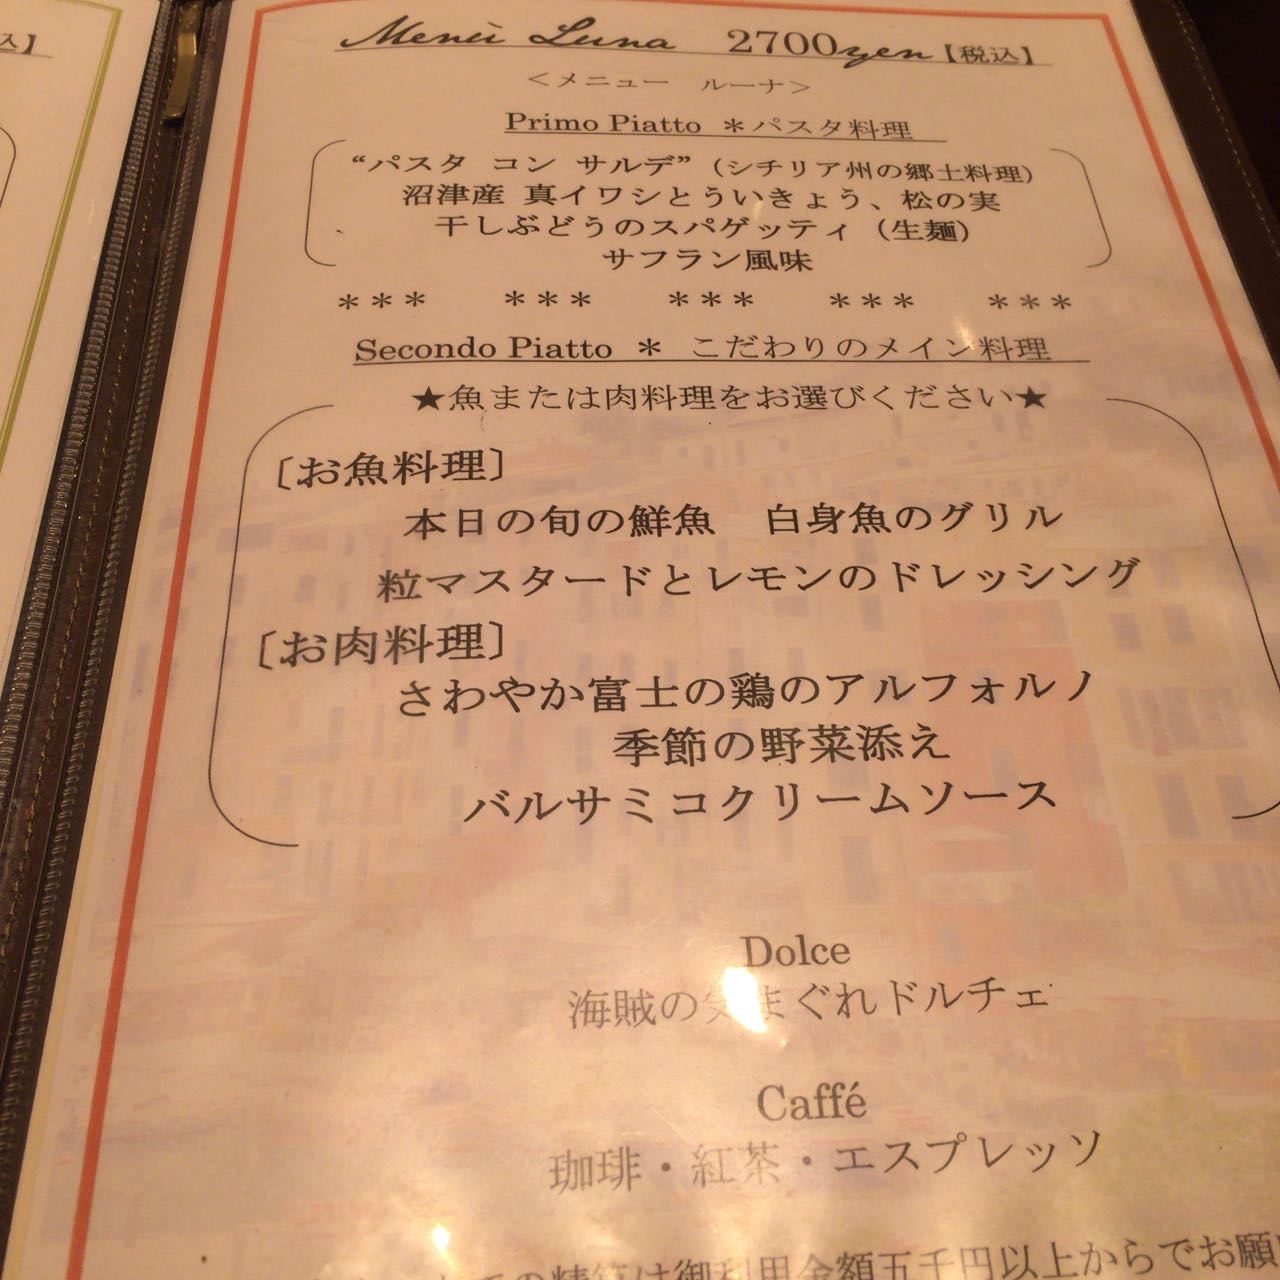 Menù Luna 2700yen【税込】
＜メニュー ルーナ＞
Primo Piatto ＊パスタ料理
“パスタ コン サルデ”（シチリア州の郷土料理）
沼津産 真イワシとういきょう、松の実
干しぶどうのスパゲッティ（生麺）
サフラン風味
＊＊＊ ＊＊＊ ＊＊＊ ＊＊＊ ＊＊＊
Secondo Piatto ＊ こだわりのメイン料理
★魚または肉料理をお選びください★
〔お魚料理〕
本日の旬の鮮魚 白身魚のグリル
粒マスタードとレモンのドレッシング
〔お肉料理〕
さわやか富士の鶏のアルフォルノ
季節の野菜添え
バルサミコクリームソース
Dolce
海賊の気まぐれドルチェ
Caffé
珈琲・紅茶・エスプレッソ
は御利用金額五千円以上からでお願